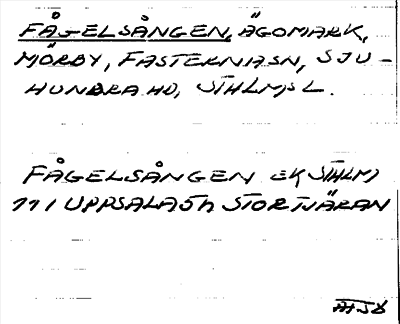 FÅGELSÅNGEN, ÄGOMARK,
MÖRBY, FASTERNASN, SJU-
HUNDRA HD, STHLMSL.
FÅGELSÅNGEN EK STHLM
111 UPPSALA 5h STORTJÄRAN